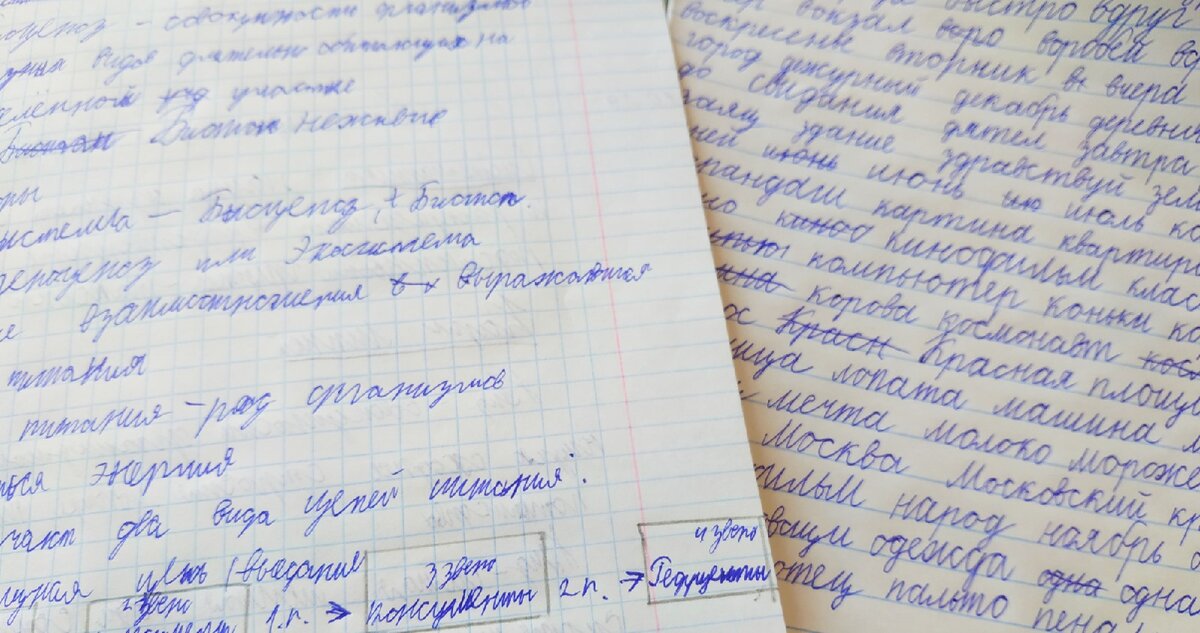 оценоз – совокупность организмов
видов длительно обитающих на
делённой уча участке
Биотоп неживые
оры
истема – Биоценоз + Биотоп.
геоценоз или Экосистема
е взаимоотношения в х выражаются
питания
питания – ряд организмов
ться энергия
чают два вида цепей питания:
цепь (выедания
2 звено
1.п. → 3 звено консументы 2.п. → 4 звено Редуценты
быстро вдруг
вокзал воро воробей во
воскресенье вторник вч вчера
город дежурный декабрь деревн
до свидания дятел завтра
здание здравствуй зем
июнь июнь ию июль ко
рандаш картина квартира
но киноо кинофильм клас
компьютер коньки ко
ина корова космонавт кос
ос Красн Красная площа
ица лопата машина м
мечта молоко мороже
Москва Московский кр
фильм народ ноябрь о
овощи одежда одна одна
отец пальто пена